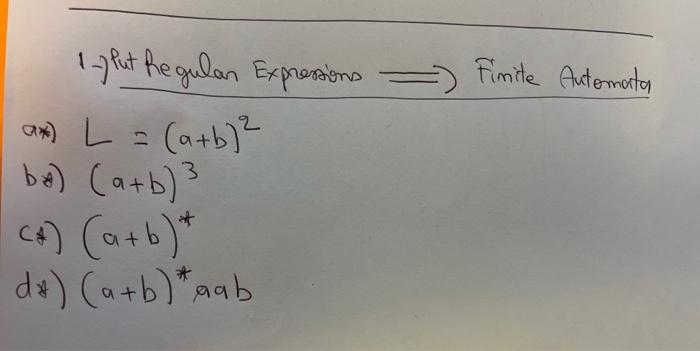 1-) Put Regular Expressions ⟹ Finite Automata
a*) L = (a+b)²
b*) (a+b)³
c*) (a+b)*
d*) (a+b)* aab